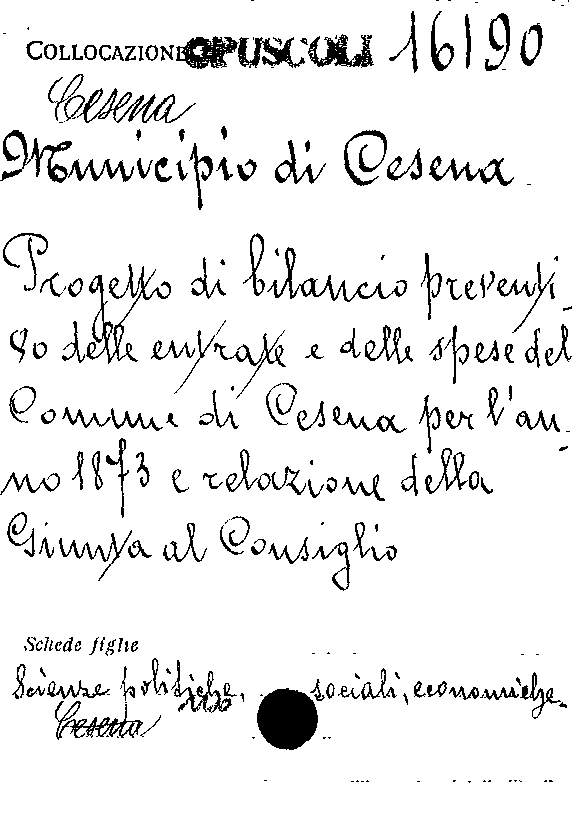 COLLOCAZIONE OPUSCOLI 16190
Cesena
Municipio di Cesena
Progetto di bilancio preventi-
vo delle entrate e delle spese del
Comune di Cesena per l'an-
no 1873 e relazione della
Giunta al Consiglio
Schede figlie
Scienze politiche, sociali, economiche.
Cesena